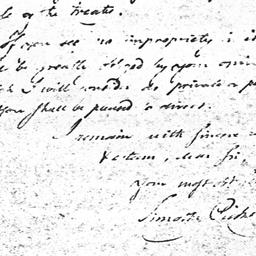 of the treaty.
If you see no impropriety in it
be greatly obliged by your opinion
I will consider as private or p
you shall be pleased to direct.
I remain with sincere
Esteem, dear Sir,
your most ob
Timothy Picke